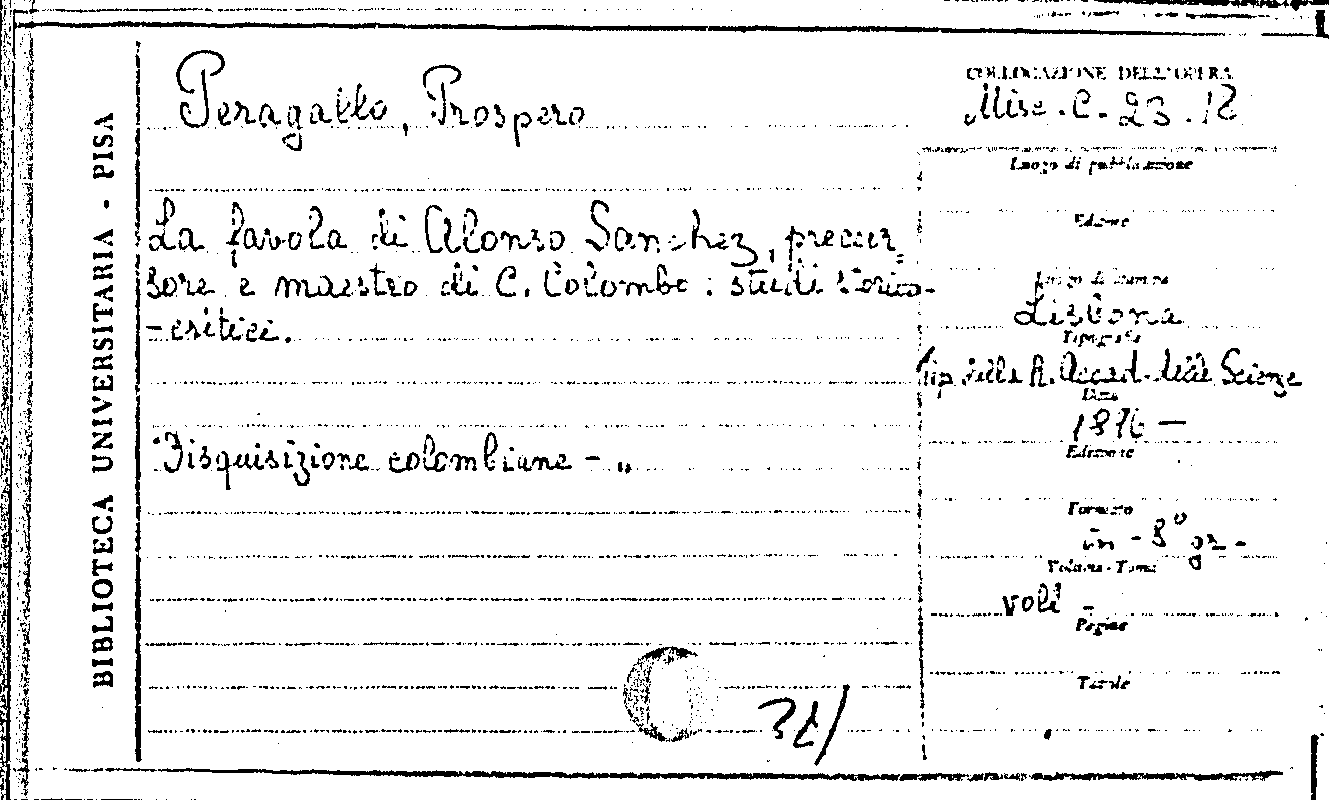 BIBLIOTECA UNIVERSITARIA - PISA
Peragallo, Prospero
COLLOCAZIONE DELL'OPERA
Misc. C. 23. 12
La favola di Alonso Sanchez, precur=
sore e maestro di C. Colombo : studi storico-
-critici.
Disquisizione colombiane - "
Luogo di pubblicazione
Edizione
Luogo di stampa
Lisbona
Tipografia
Tip. della R. Accad. delle Scienze
Data
1896 -
Edizione
Formato
in - 8° gr -
Volume-Tomi
voli -
Pagine
Tavole